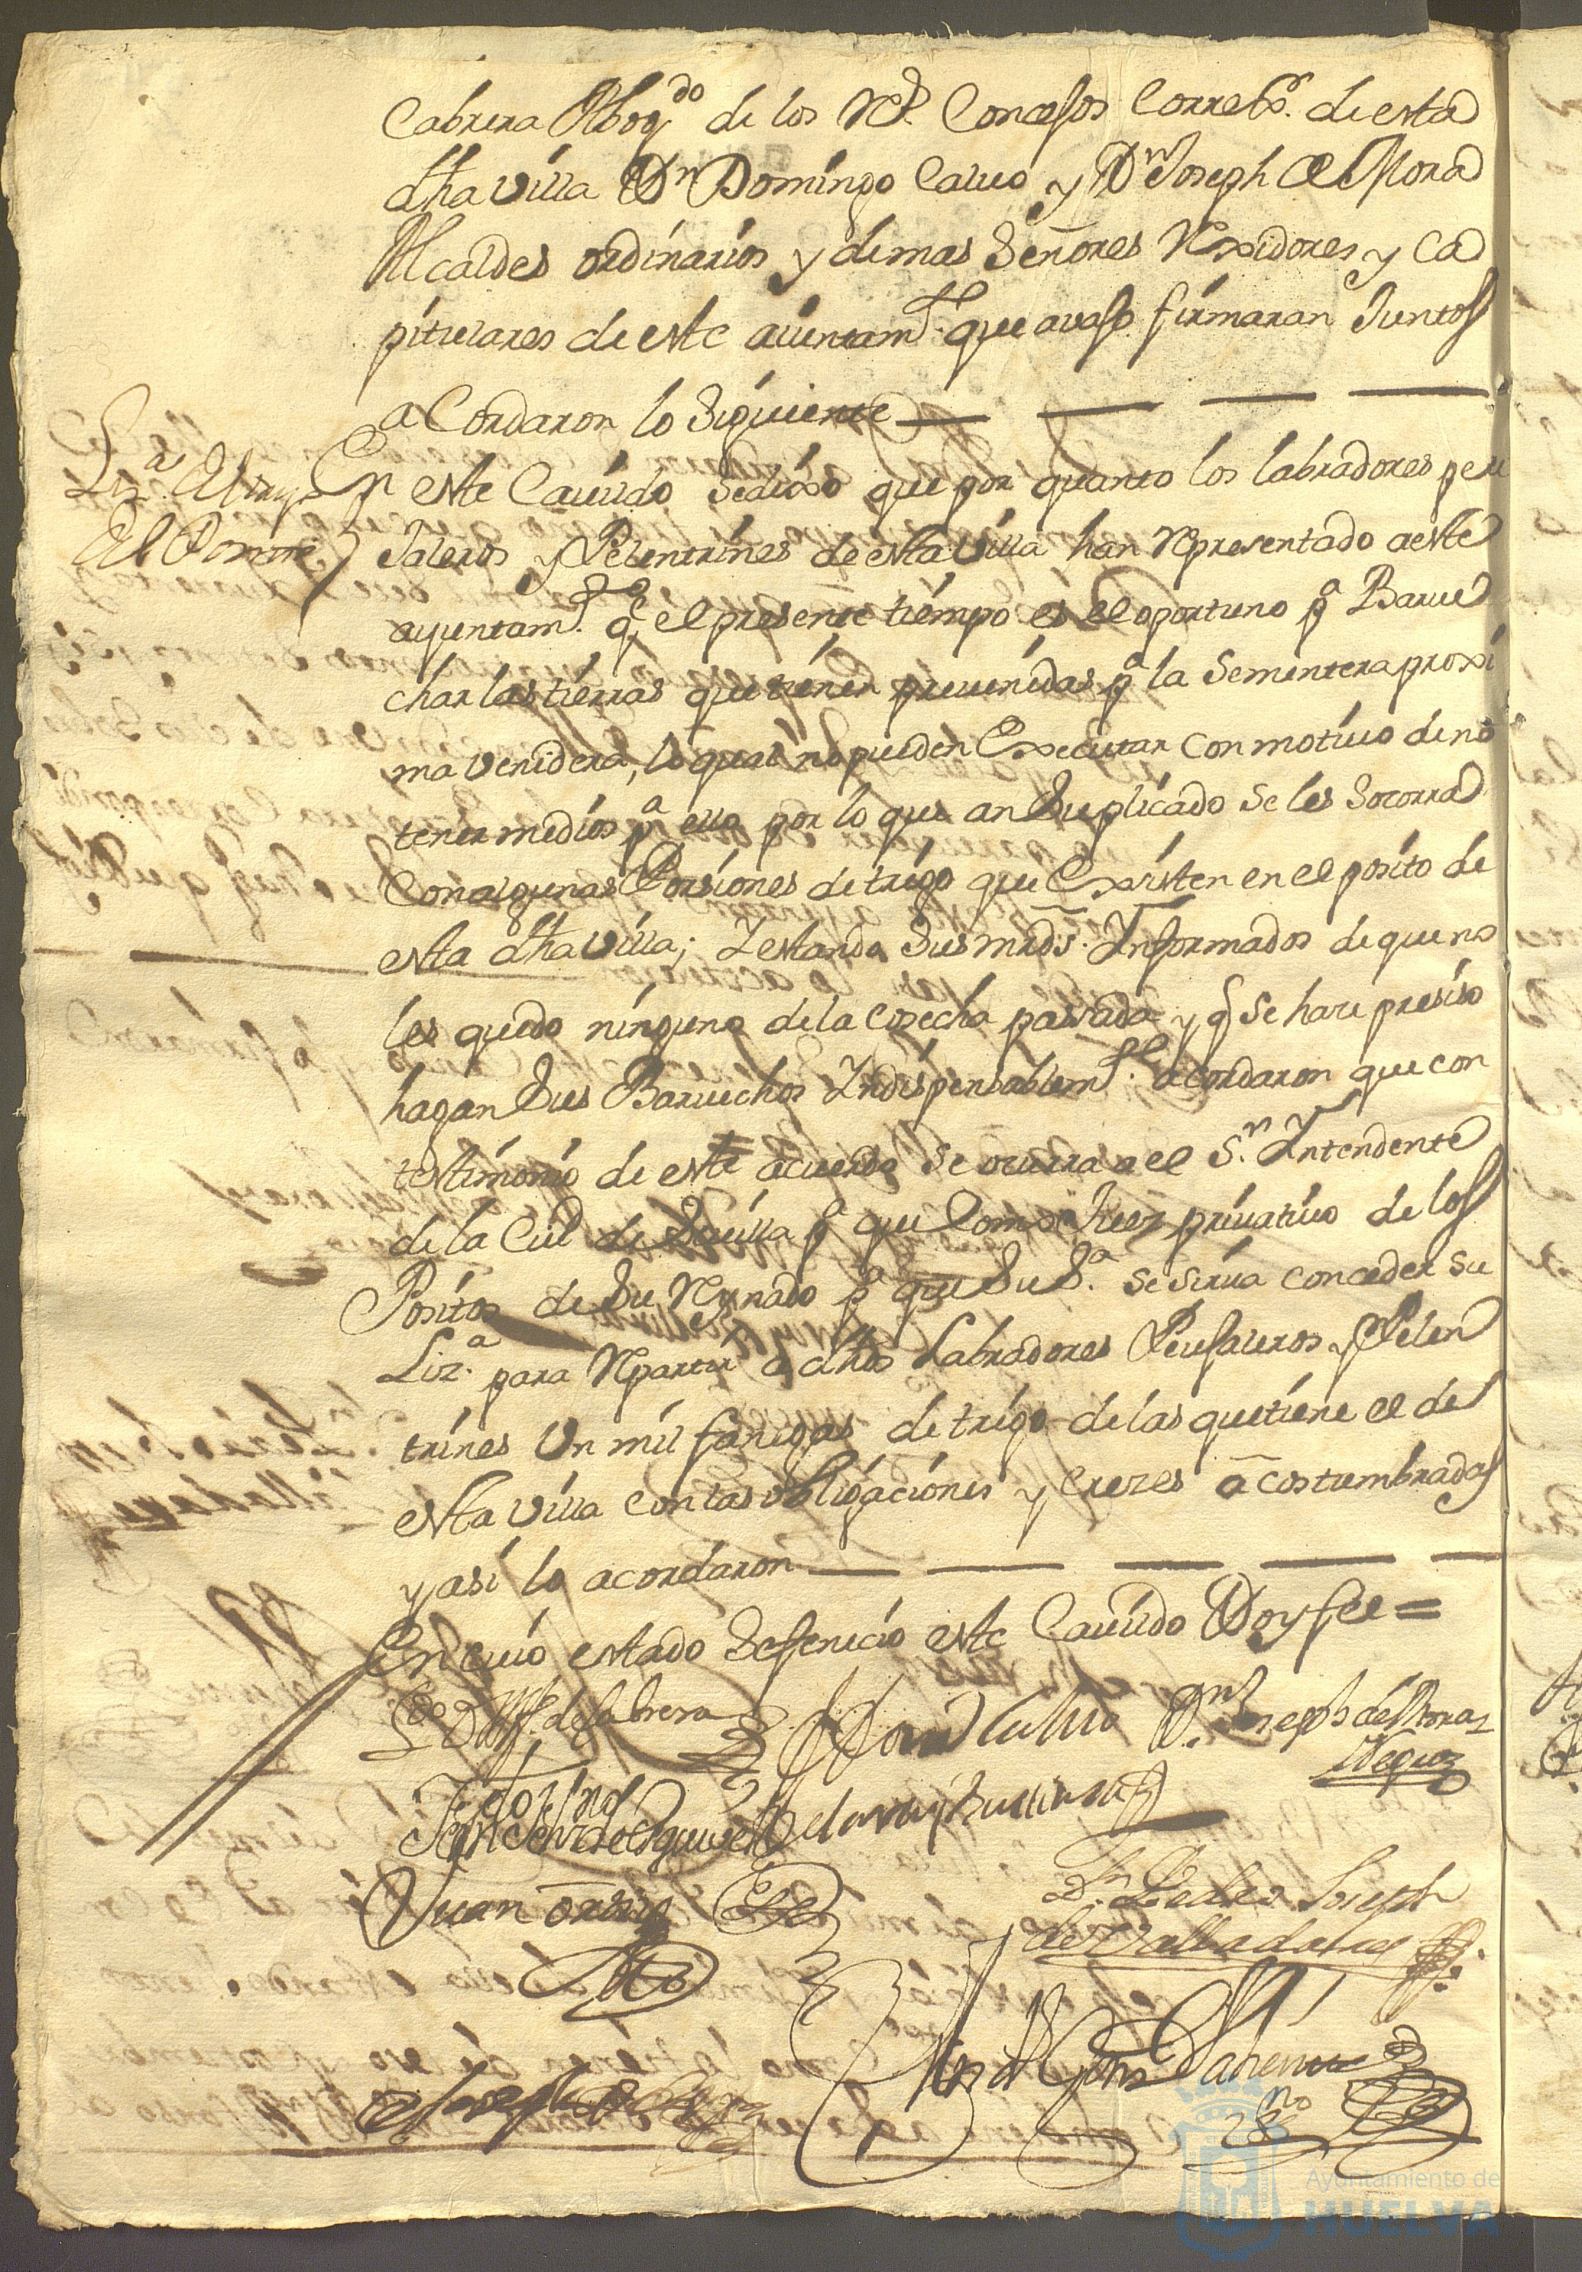 Cabrera Abogdo de los Rs. Consejos Correxor. de esta
dha Villa Dn Domingo Calvo y Dn Joseph de Mora
Alcaldes ordinarios y demas Señores Rexidores y Ca
pitulares de este aiuntamto. que avaxo firmaran Juntos
aCordaron lo Siguiente
Liza. El trigo
El Posito
En este Cavildo Sedixo que por quanto los labradores peu
Jaleros y Pelentrines de esta Villa han Representado aeste
ayuntamto. q̃ el presente tiempo es el oportuno pa Barve
char las tierras que tienen prevenidas pa la Sementera proxi
ma Venidera, lo qual no pueden Executar con motivo de no
tener medios pa ello por lo que an Suplicado Se les Socorra
Con algunas Porsiones de trigo que Existen en el posito de
esta dha Villa; Y estando Sus mrds. Informados de que no
les quedo ninguno de la Cosecha passada y q̃ Se hace presiso
hagan Sus Barvechos Indispensablemte. acordaron que con
testimonio de este acuerdo Se ocurra a el Sr. Intendente
de la Ciud de Sevilla pa que Como Juez privativo de los
Positos de Su Reynado pa que Su Sa. se sirva conceder su
Liza. para Repartir a dhos Labradores Peujaleros y Pelen
trines Un mil fanegas de trigo de las que tiene el de
esta Villa con las obligaciones y Creces acostumbradas
y asi lo acordaron
En cuio estado Sefenicio este Cavildo Doy fee =
Ldo Dn de Cabrera
Domo Calvo
Dn Joseph de Mora
Negro
Juan Ortiz
Dn Pedro Joseph
de Valladolid
no
Ayuntamiento de
HUELVA